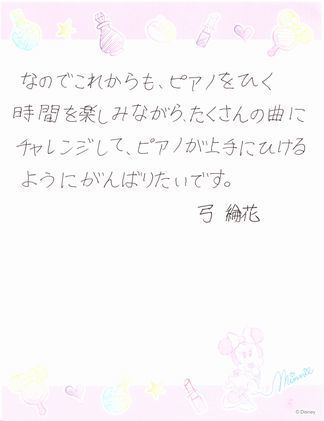 なのでこれからも、ピアノをひく
時間を楽しみながら、たくさんの曲に
チャレンジして、ピアノが上手にひける
ようにがんばりたいです。
弓 綸花
Minnie
© Disney